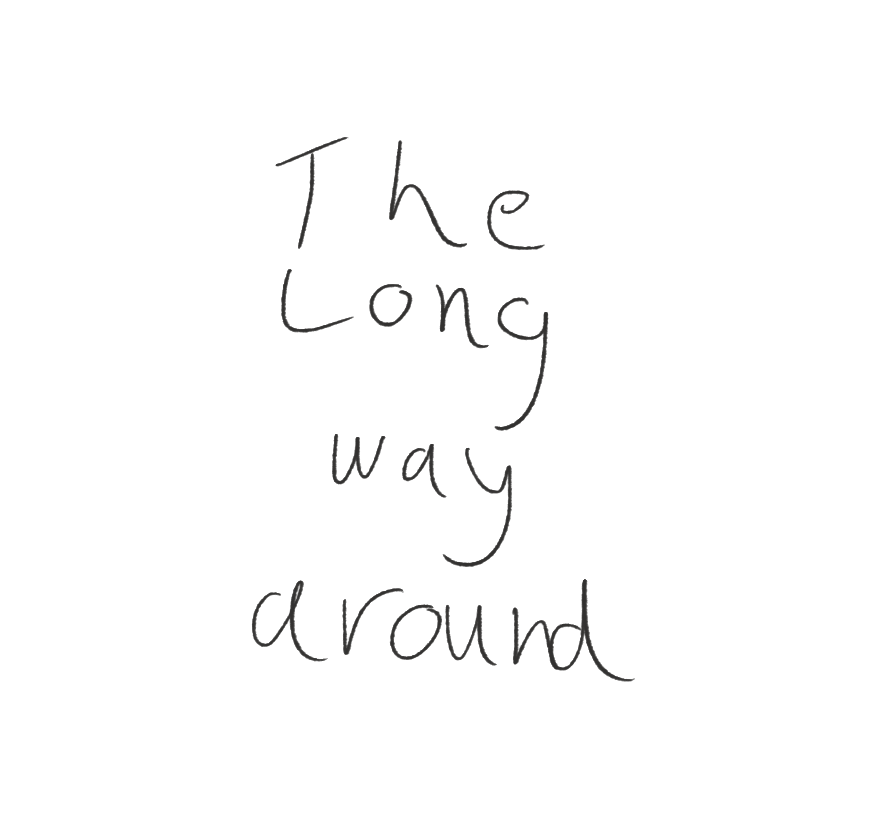 The
Long
way
around